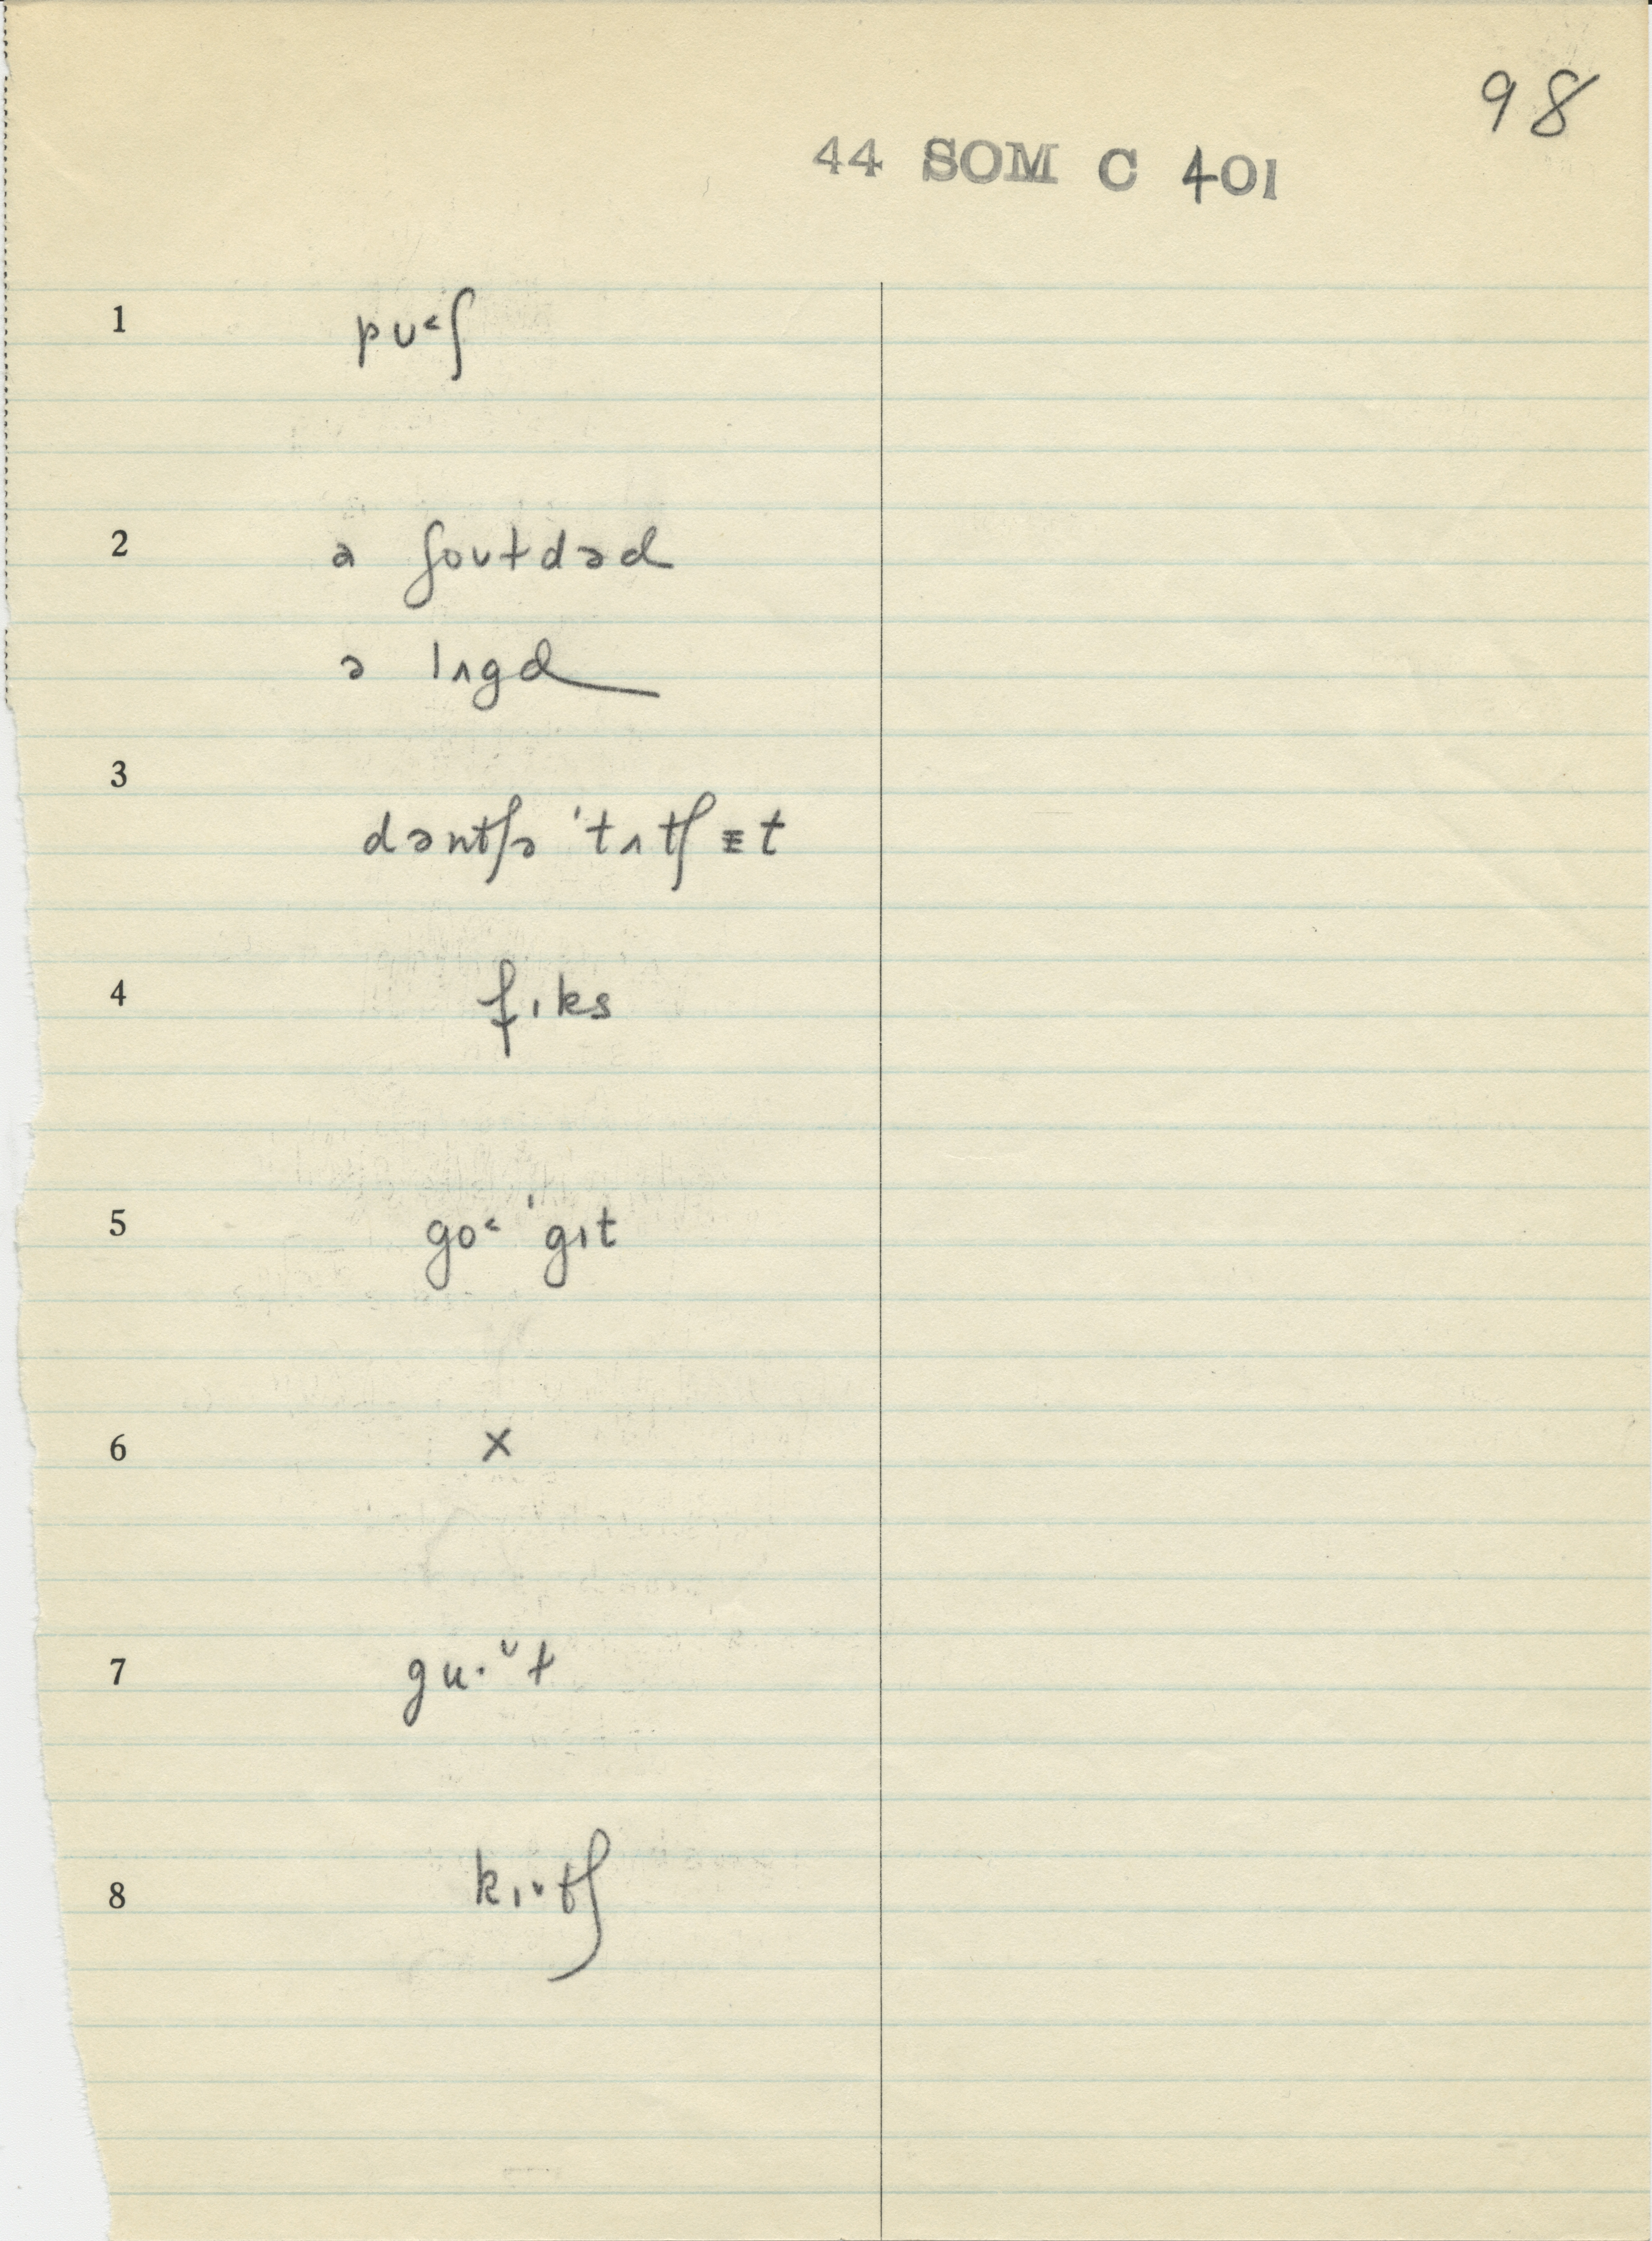 98
44 SOM C 401
1 pʊ˂ʃ
2 ə ʃoʊɫdəd
ə lʌgd
3 dəntʃə 'tʌtʃ ɪt
4 fɪks
5 go˂ 'gɪt
6 x
7 gu·ᵘɫ
8 kɪ˅tʃ